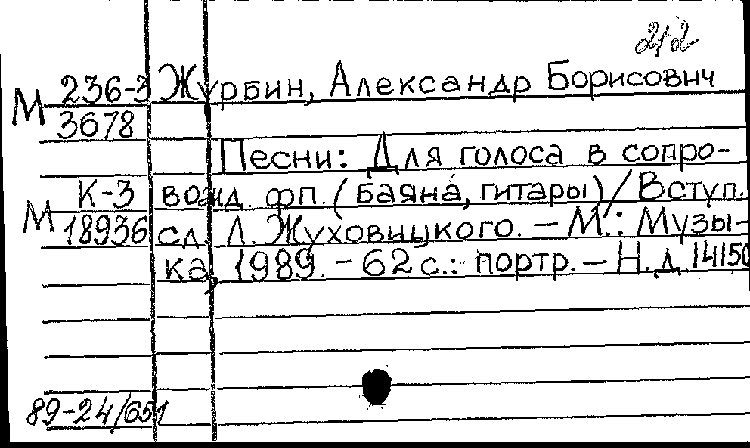 212
М 236-3 Журбин, Александр Борисович
3678
Песни: Для голоса в сопро-
К-3 вожд. фп. (баяна, гитары) / Вступ.
М 18936 сл. Л. Жуховицкого. - М.: Музы-
ка, 1989. - 62 с.: портр. - Н. д. 14150
89-24/651